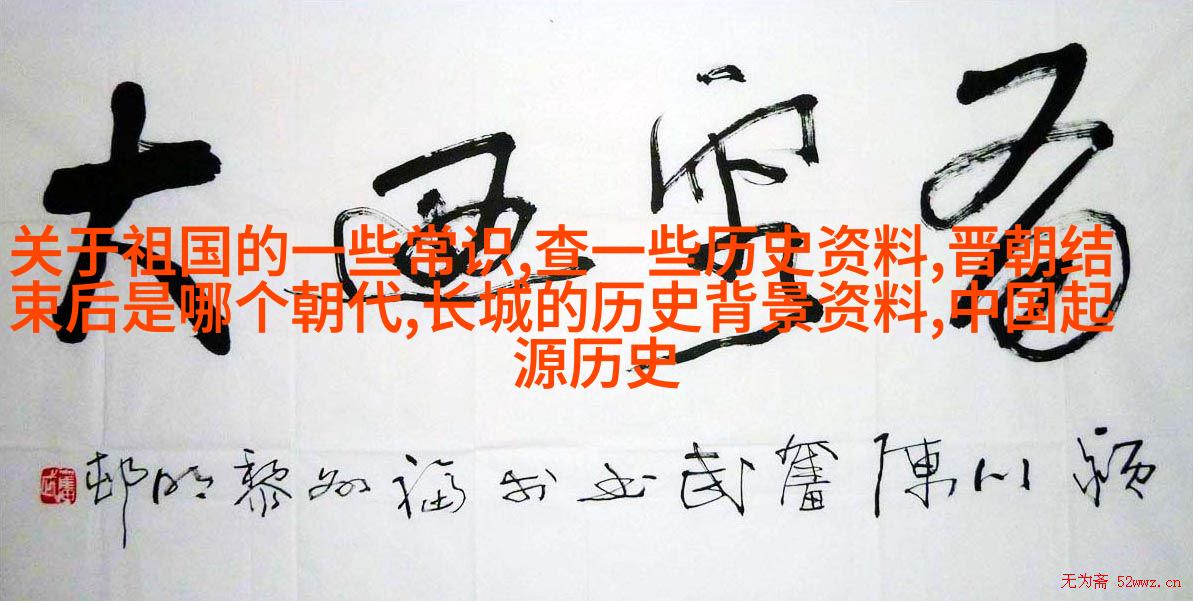 大
关于祖国的一些常识,查一些历史资料,晋朝结
束后是哪个朝代,长城的历史背景资料,中国起
源历史
川陳奮武书於福州黎明邨
无为斋 52wwz.cn